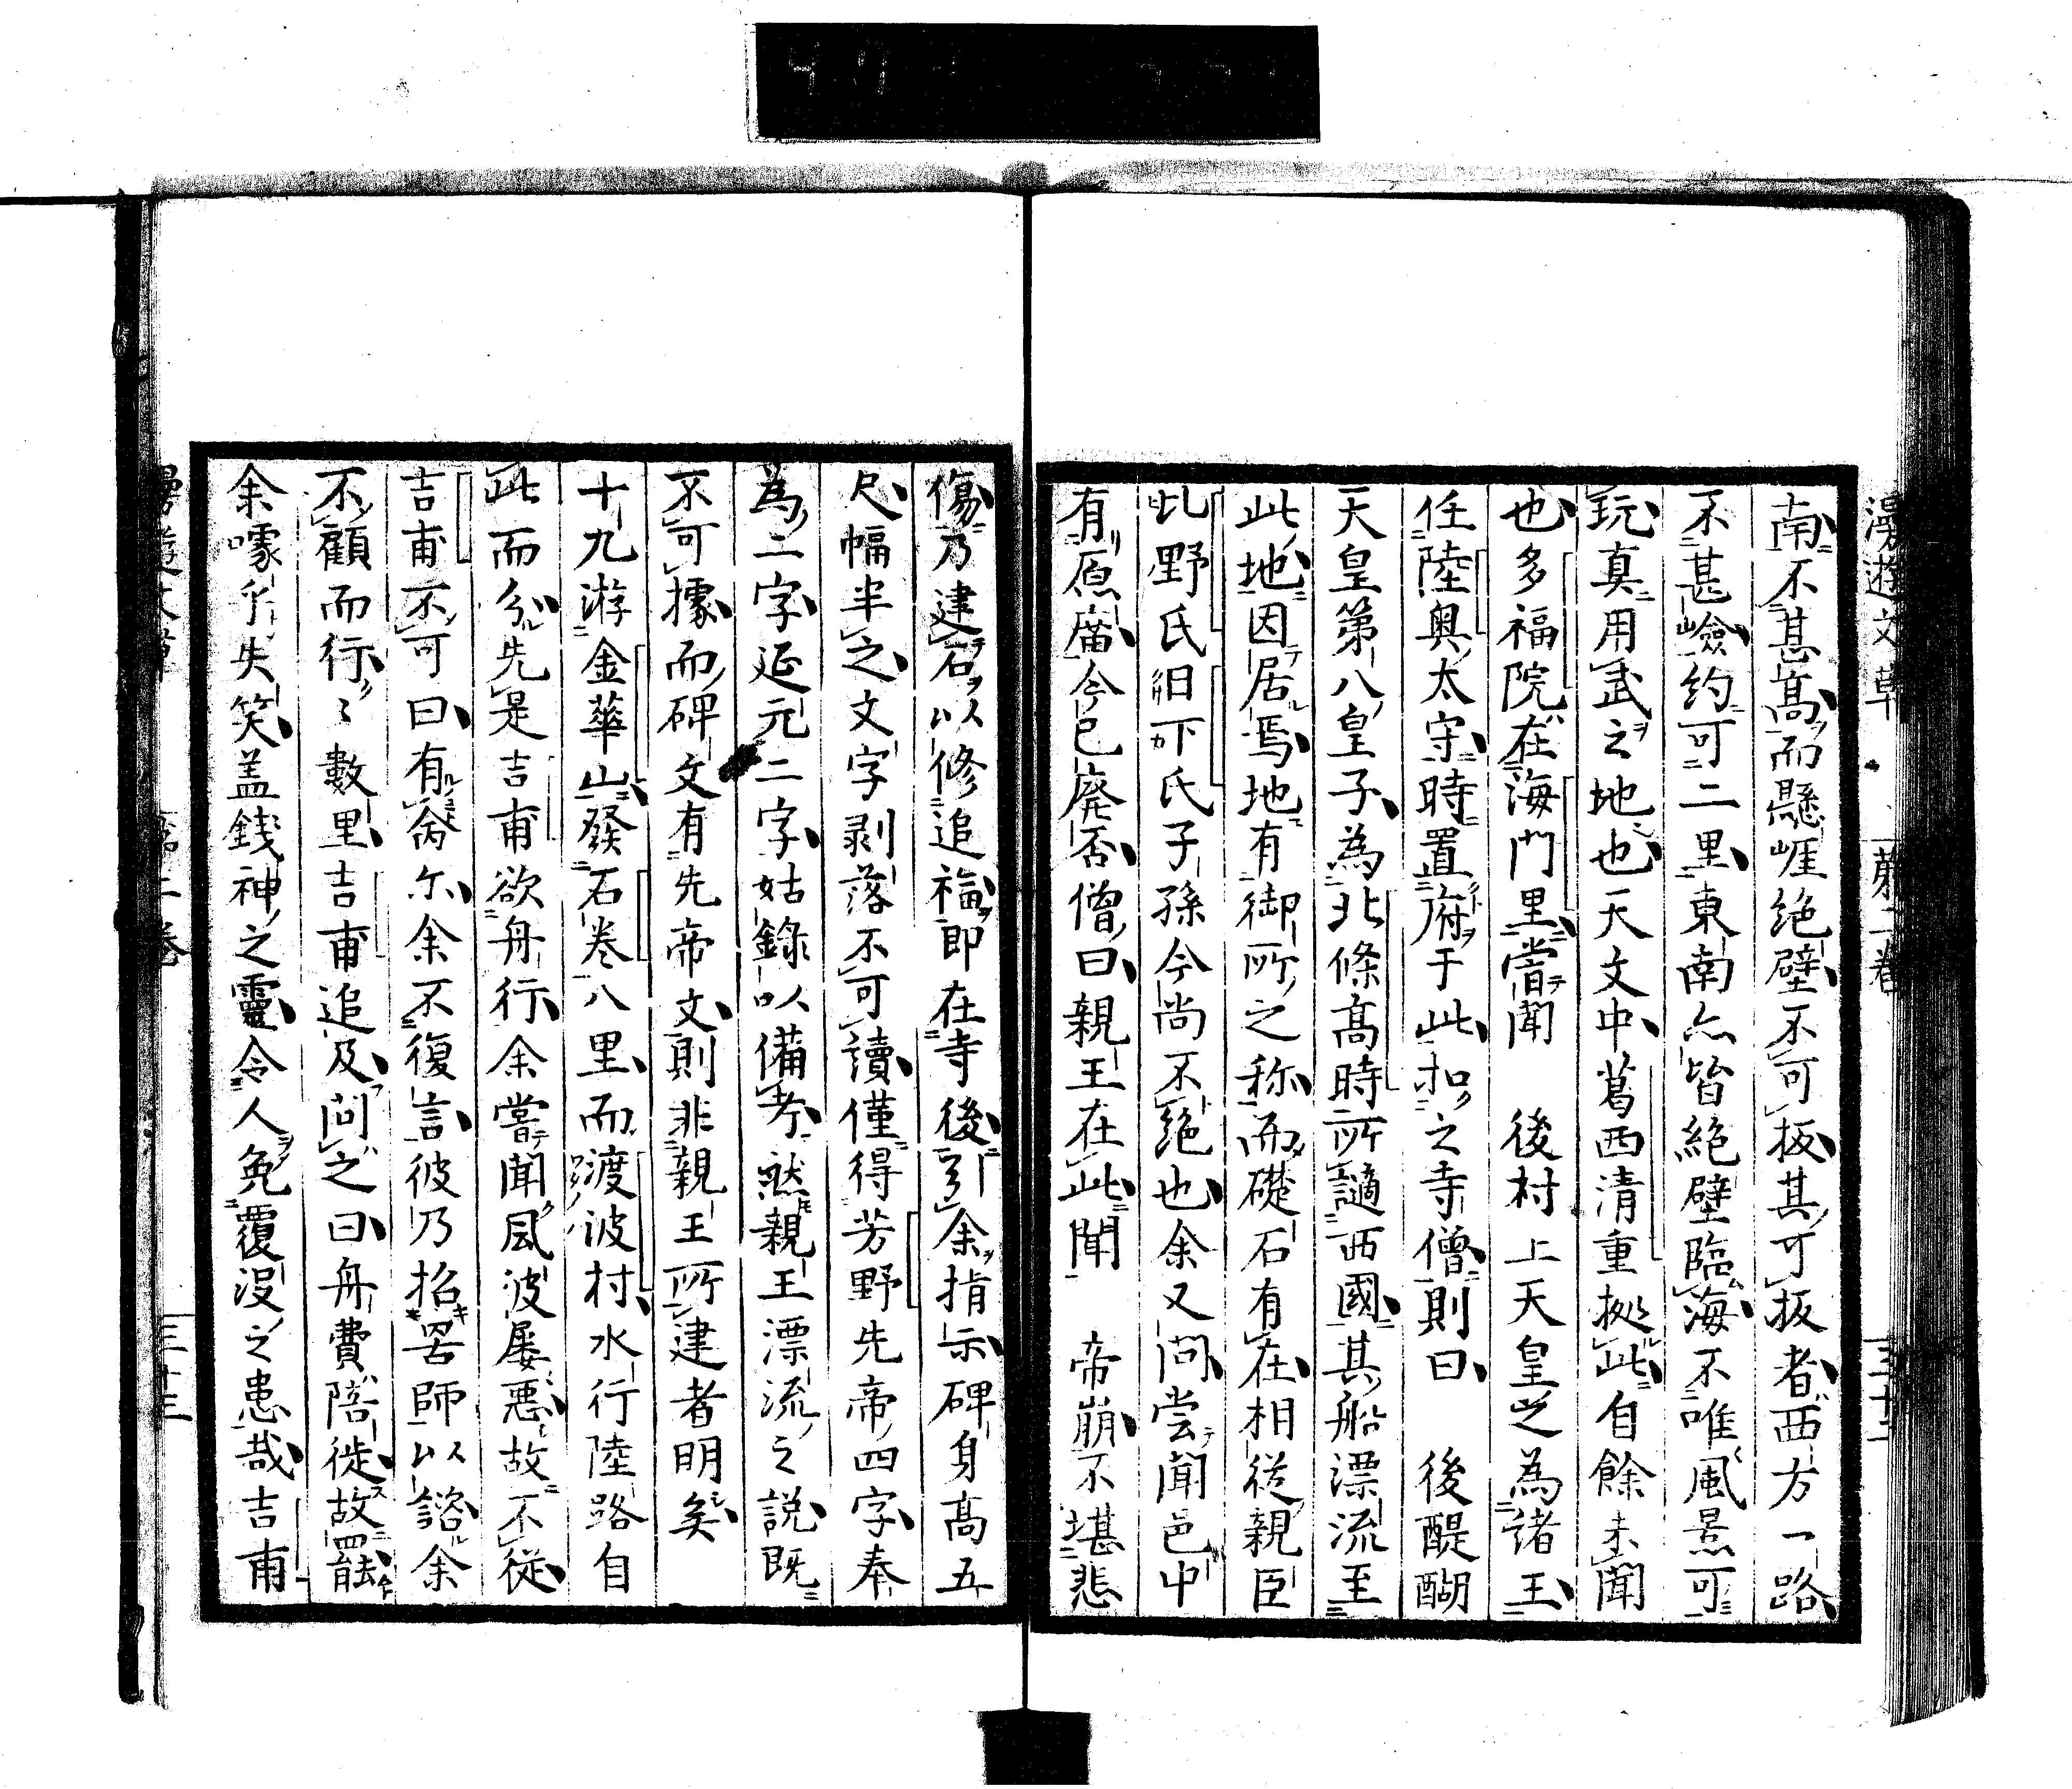 漫遊文草 第二卷 三十二
南不甚高而懸崕絶壁不可扳其可扳者西方一路
不甚嶮約可二里東南亦皆絶壁臨海不唯風景可
玩真用武之地也天文中葛西清重拠此自餘未聞
也多福院在海門里嘗聞 後村上天皇之為諸王
任陸奥太守時置府于此扣之寺僧則曰 後醍醐
天皇第八皇子為北條高時所謫西國其船漂流至
此地因居焉地有御所之称而礎石有在相從親臣
比野氏日下氏子孫今尚不絶也余又問尝聞邑中
有原庿今已廃否僧曰親王在此聞 帝崩不堪悲
傷乃建石以修追福即在寺後引余指示碑身高五
尺幅半之文字剥落不可讀僅得芳野先帝四字奉
為二字延元二字姑錄以備考然親王漂流之説既
不可據而碑文有先帝文則非親王所建者明矣
十九游金華山發石巻八里而渡波村水行陸路自
此而分先是吉甫欲舟行余嘗聞風波屡惡故不從
吉甫不可曰有為尓余不復言彼乃招罟師以諮余
不顧而行〻數里吉甫追及問之曰舟費陪徙故罷
余噱乎失笑盖錢神之靈令人免覆没之患哉吉甫
漫遊文草 第二卷 三十三